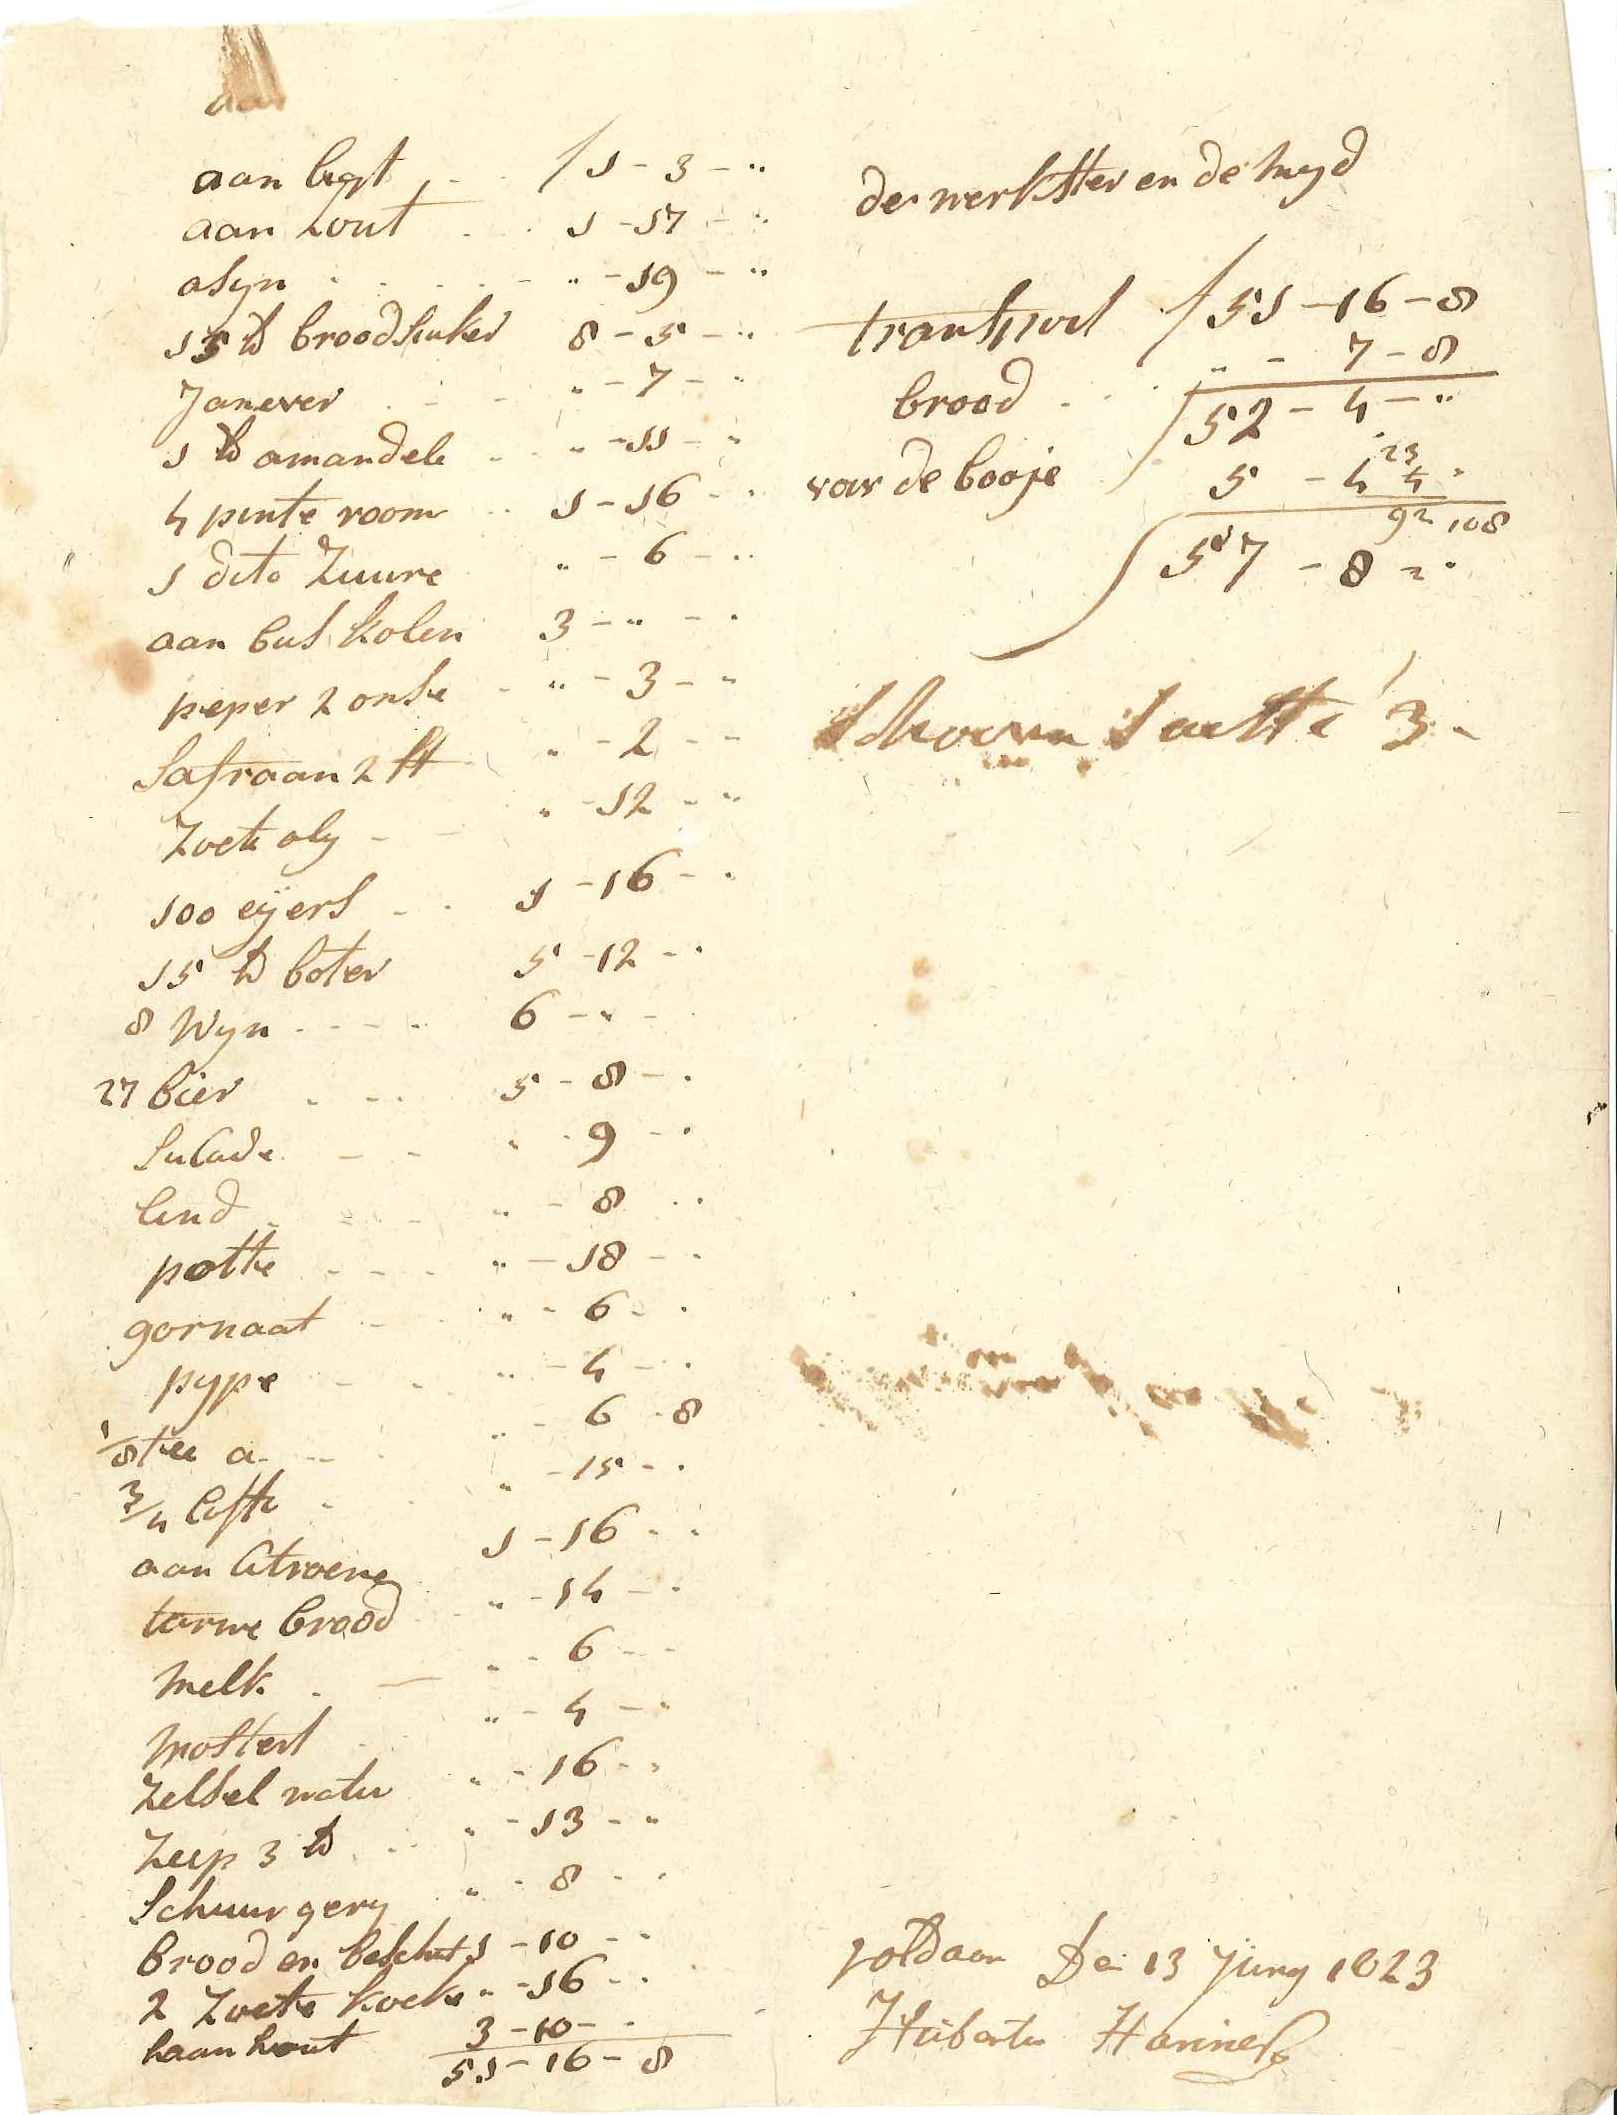 aan
aan legt . . ƒ 1 - 3 - "
aan zout . . . 1 - 17 - "
asyn . . . . . " - 19 - "
15 ℔ broodsuker 8 - 5 - "
Janever . . . " - 7 - "
1 ℔ amandele . . " - 11 - "
4 pinte room . . 1 - 16 - "
1 dito Zuure " - 6 - "
aan bus kolen 3 - " - "
peper 2 onse . " - 3 - "
Safraan 2 st " - 2 - "
Zoete oly - - " - 12 - "
100 eyers . . 1 - 16 - "
15 ℔ boter 5 - 12 - "
8 Wyn . . . . 6 - " -
27 bier . . . 5 - 8 - "
Sucade . . . " - 9 - "
lind . . . . " - 8 - "
potte . . . . " - 18 - "
gornaat . . . " - 6 - "
pype . . . " - 4 - "
1/8 tee a . . . " - 6 - 8
3/4 Coffe . . " - 15 - "
aan Citroene 1 - 16 - "
tarwe brood . " - 14 - "
melk . — " - 6 - "
mostert . " - 4 - "
Zelsel water " - 16 - "
Zeep 3 ℔ . . " - 13 - "
Schuur gery " - 8 - "
brood en beschut 1 - 10 - "
2 Zoete koeke " - 16 - "
haan hout 3 - 10 - "
51 - 16 - 8
de werkster en de myd
transport ƒ 51 - 16 - 8
brood . . . " - 7 - 8
ƒ 52 - 4 - "
var de booje . 5 - 4 - "
23
4
92 108
ƒ 57 - 8 - "
Schoern 3 -
voldaan De 13 Juny 1823
Hubertu Hannes